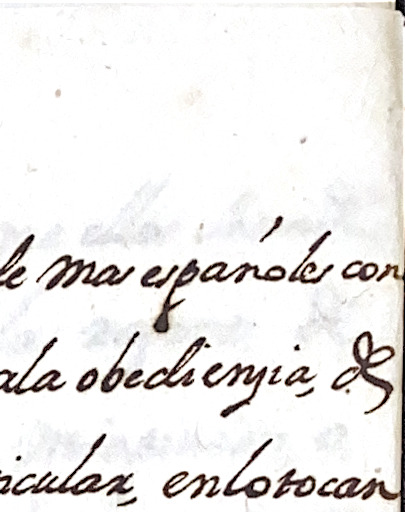 le mas españoles con
ala obedienzia, de
ticular, enlotocan